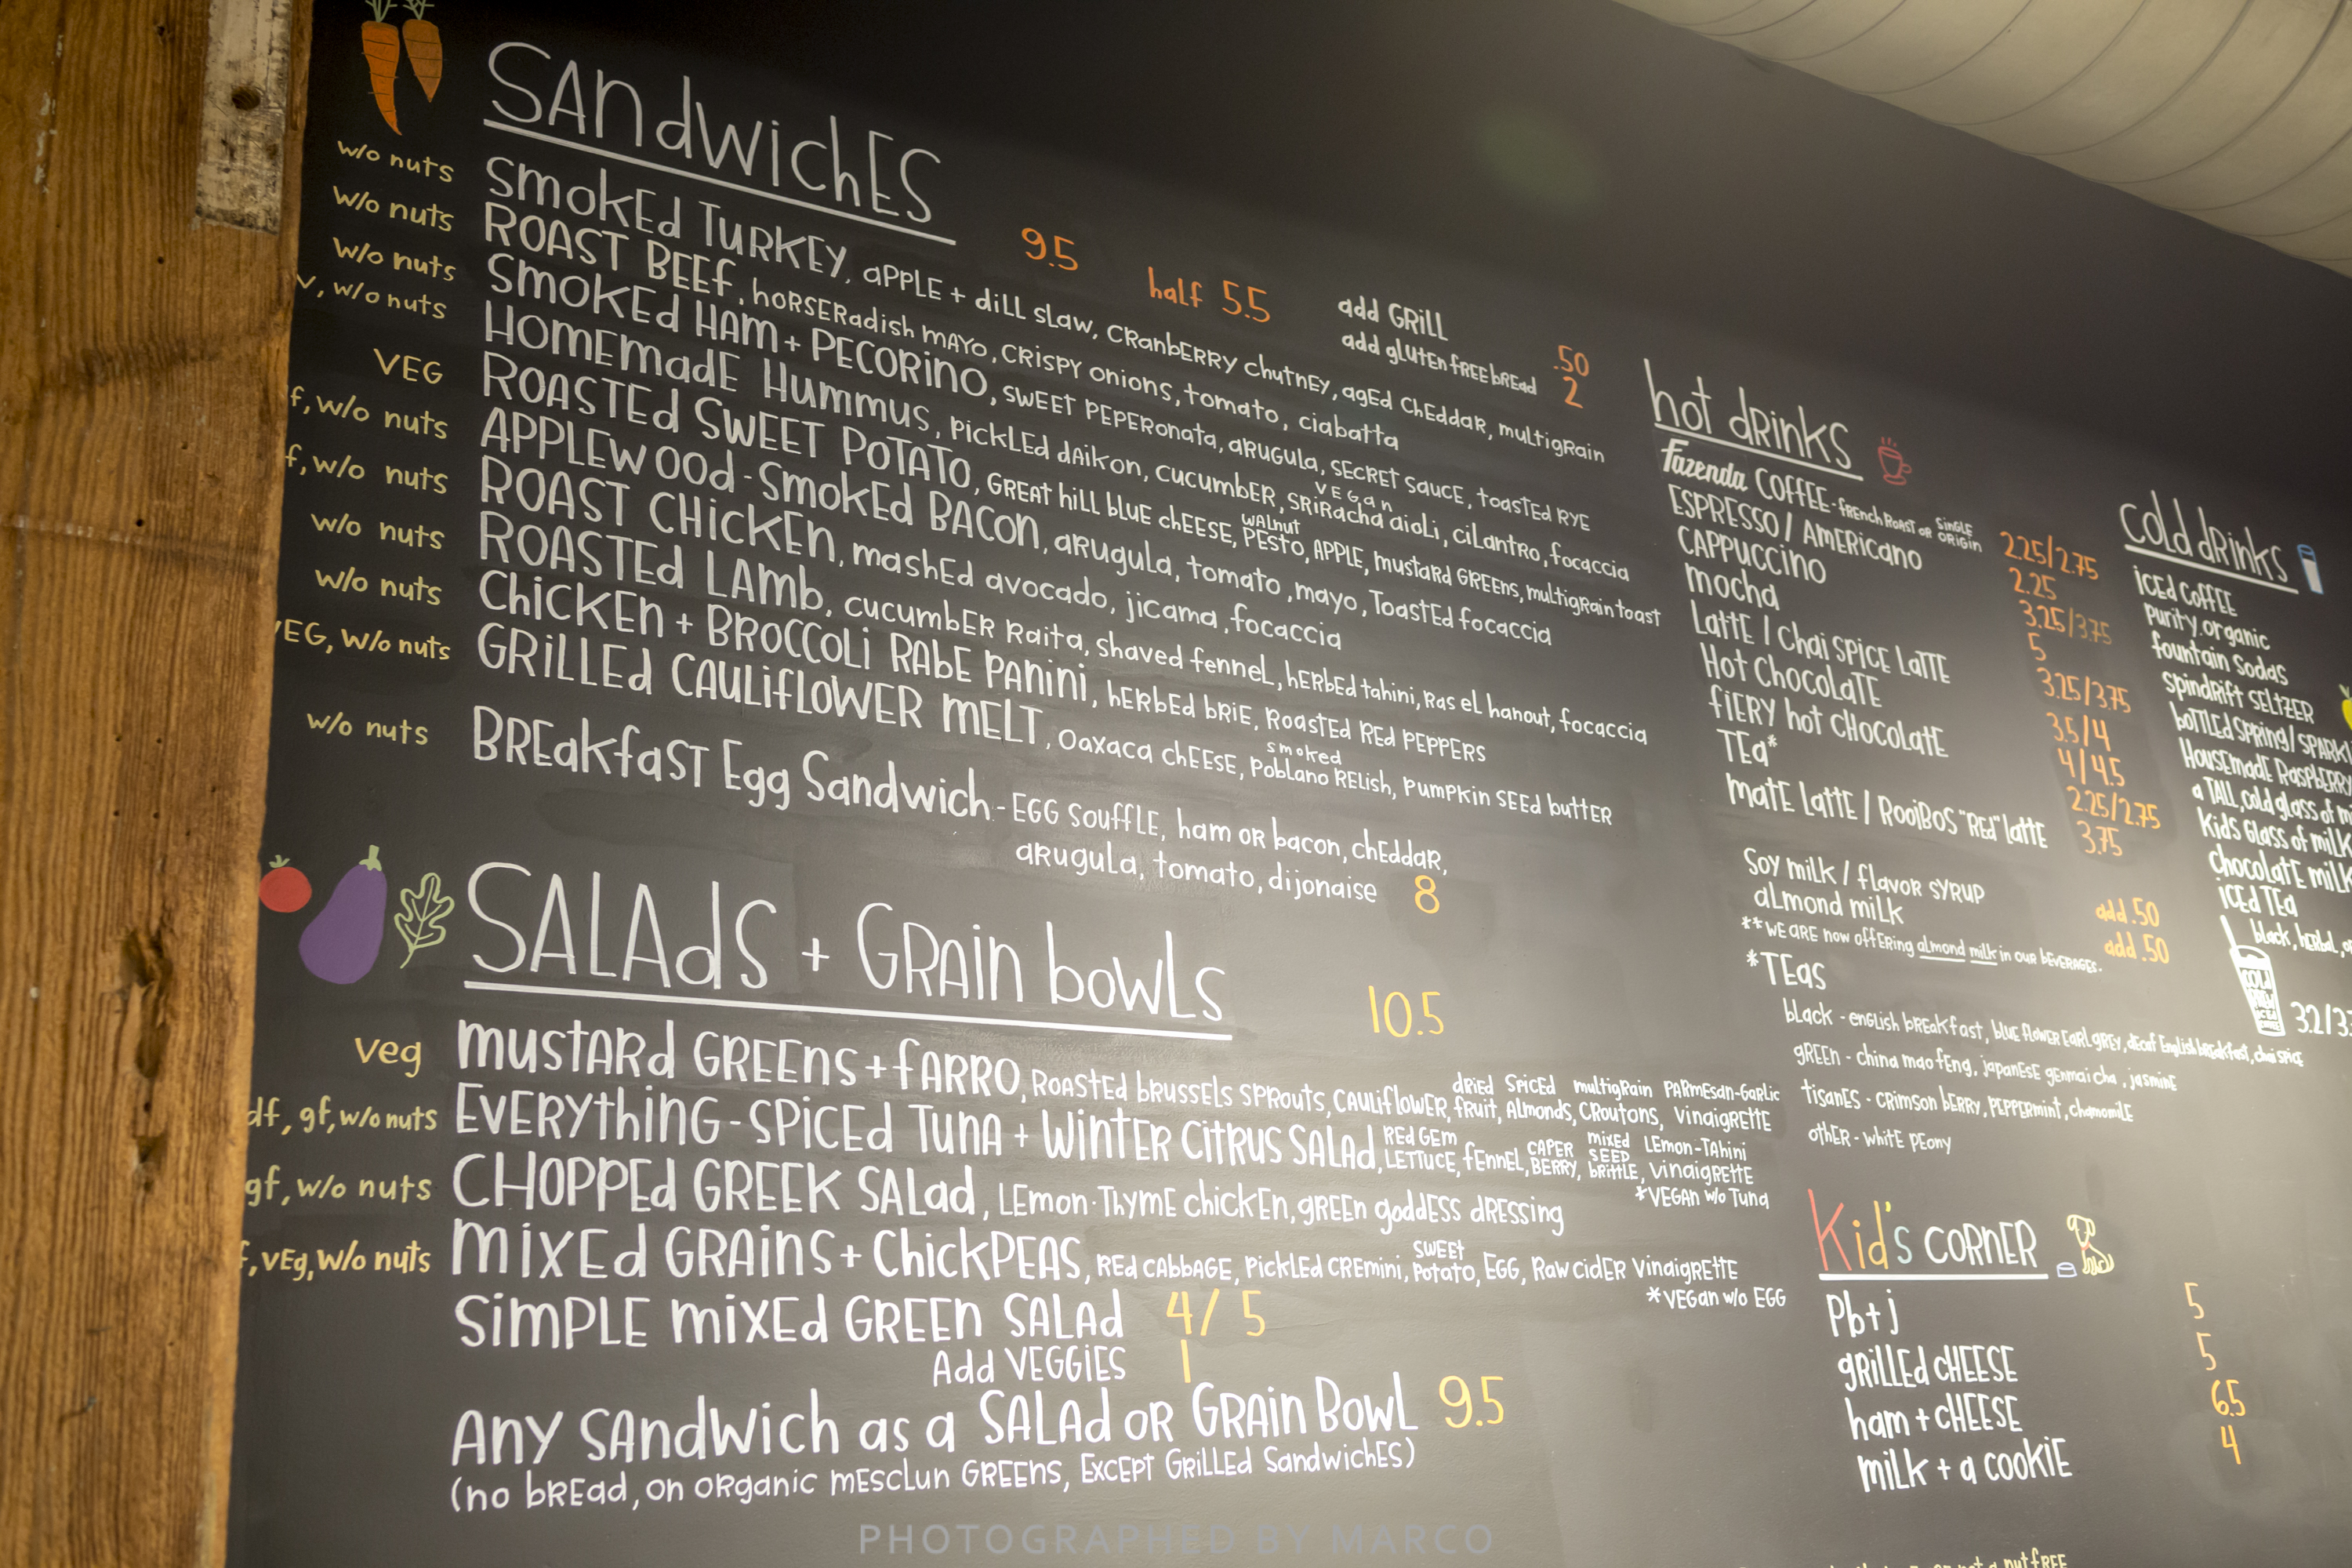 SANdWichES
9.5
half 5.5
add GRiLL .50
add glUTEn fREE bREad 2
w/o nuts SmokEd TuRKEy, aPPLE + diLL slaw, CRanbERRY chutnEy, agEd ChEddaR, multigRain
w/o nuts ROAST BEEf, hoRSERadish mAYo, CRiSpy onions, tomato, ciabatta
w/o nuts SmokEd HAm + PECORino, SWEET PEPERonata, aRugula, SECRET SaucE, toaSTEd RYE
V, w/o nuts HOmEmadE Hummus, PickLEd dAikon, cucumbER, SRiRacha VEGan aioli, ciLantRo, focaccia
VEG ROASTEd SWEET PoTATO, GREAT hiLL blUE chEESE, WALnut PESTO, APPLE, mustaRd GREEns, multigRain toast
f, w/o nuts APPLEWOOd-SmokEd BACon, aRugula, tomato, mayo, ToastEd focaccia
f, w/o nuts ROAST CHicKEn, mashEd avocado, jicama, focaccia
w/o nuts ROASTEd LAmb, cucumbER Raita, shaved fennEL, hERbEd tahini, Ras el hanout, focaccia
w/o nuts ChicKEn + BROCCoLi RAbE PAnini, hERbEd bRiE, RoastEd REd PEPPERS
VEG, w/o nuts GRiLLEd CAULifLOWER mELT, Oaxaca chEESE, smoked Poblano RELish, PumPKin SEEd buttER
w/o nuts BREakfasT Egg Sandwich - EGG SouffLE, ham OR bacon, chEddaR,
aRugula, tomato, dijonaise 8
SALAdS + GRAin bowLs
10.5
veg mustARd GREEns + fARRO, RoAStEd bRussELs SPRouts, CAULifLOWER, dRiEd SPicEd fRuit, ALmonds, multigRain CRoutons, PARmEsan-GaRLic VinaigREttE
df, gf, w/o nuts EVERYthinG-SPicEd TunA + WintER CitRUS SALAd, REd GEm LETTUCE, fEnnEL, CAPER BERRY, mixEd SEEd bRittLE, LEmon-TAhini VinaigREttE
*VEGAn w/o Tuna
gf, w/o nuts CHOPPEd GREEK SALad, LEmon-ThymE chickEn, gREEn goddESS dRESSing
f, vEg, w/o nuts mixEd GRAinS + ChickPEAS, REd cAbbAGE, PicKLEd CREmini, SWEET Potato, EGG, Raw cidER VinaigREttE
*VEGan w/o EGG
SimPLE mixEd GREEn SALAd 4/ 5
Add VEGGiES 1
Any SAndwich as a SALAd oR GRAin BowL 9.5
(no bREad, on ORganic mEsclun GREEns, ExcEPT GRiLLEd SandwichES)
hot dRinks
fazenda COffEE - fREnch RoAST oR SinGLE ORIGin 2.25/2.75
ESPRESSO / AmERicano 2.25
CAPPUCCINO 3.25/3.75
mocha 5
LattE / Chai SPICE LaTTE 3.25/3.75
Hot ChocoLaTE 3.5/4
fiERY hot cHocoLatE 4/4.5
TEa* 2.25/2.75
matE LattE / RooiBOS "REd" LattE 3.75
Soy miLk / flavoR SYRUP add .50
aLmond miLk add .50
**WE ARE now offERing almond milk in ouR bEVERAGES.
*TEas
black - EngLish bREakfast, bluE flowER EaRL gREY, dEcaf English bREakfast, chai SPicE
gREEn - china mao fEng, japanESE genmai cha, jasminE
tisanES - cRimson bERRy, PEPPERmint, chamomiLE
othER - whitE PEony
Kid's coRnER
Pb+j 5
gRiLLEd cHEESE 5
ham + cHEESE 6.5
miLk + a cookiE 4
cold dRinks
icEd CoffEE
purity.organic
fountain Sodas
SpindRift SELTZER
boTTLEd SPRing/ SPARK
HousEmadE RaspbERRY
a TALL, cold glass of m
Kids Glass of miLK
chocolatE miLk
icEd TEa
black, hERbaL, o
3.2/3.
PHOTOGRAPHED BY MARCO